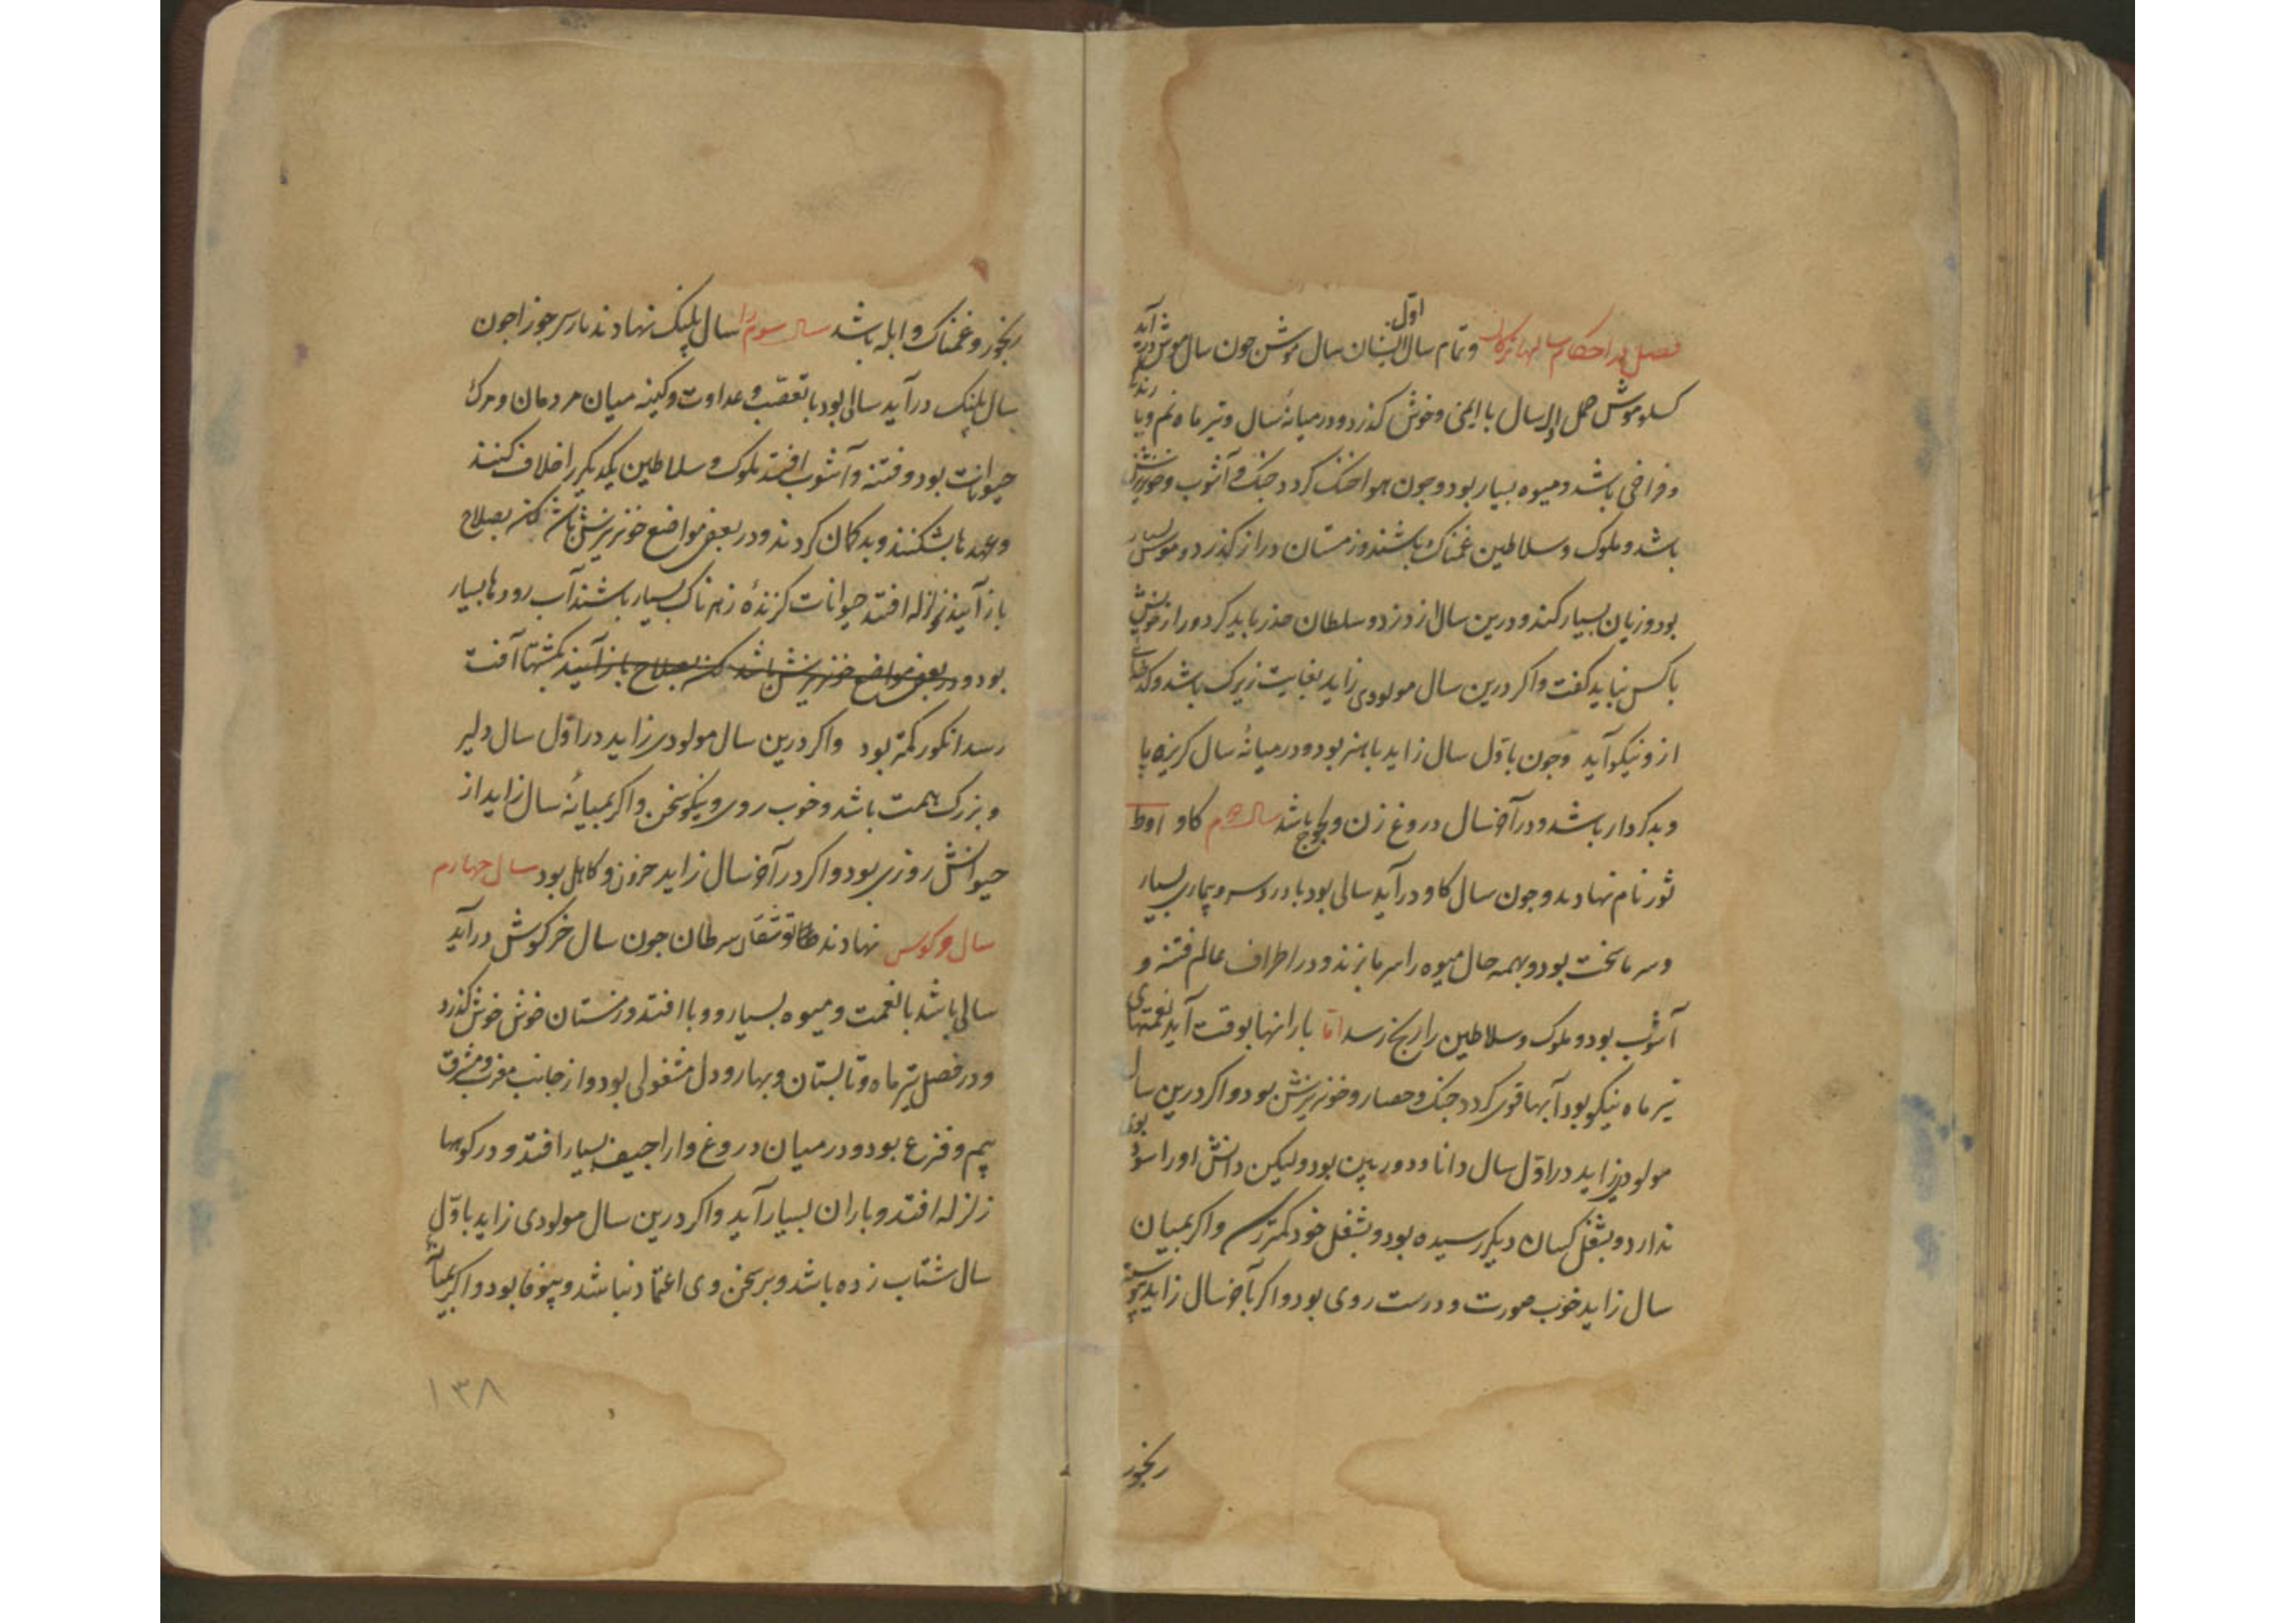 فصل در احکام سالهاء ترکان و نام سال اول ایشان سال موش چون سال موش درآید
حمل اول سال با ایمنی و خوش گذرد و در میانۀ سال و تیر ماه نم و با
و فراخی باشد و میوه بسیار بود و چون هوا خنک گردد جنک و آشوب و خونریزش
باشد و ملوک و سلاطین غمناک باشند و زمستان دراز گذرد و موش بسیار
بود و زیان بسیار کند و درین سال از دزد و سلطان حذر باید کرد و راز خویش
با کس نباید گفت و اکر درین سال مولودی زاید بغایت زیرک باشد و
ازو نیکو آید و چون باول سال زاید با هنر بود و در میانۀ سال گریزه پا
و بدکردار باشد و در آخر سال دروغ زن و لجوج باشد سال دوم کاو اوط
ثور نام نهادند و چون سال کاو درآید سالی بود با درد سر و بیماری بسیار
و سرما سخت بود و بهمه حال میوه را سرما بزند و در اطراف عالم فتنه و
آشوب بود و ملوک و سلاطین را رنج رسد اما بارانها بوقت آید نعمتهای
تیر ماه نیکو بود آبها قوی کردد جنک و حصار و خونریزش بود و اکر درین سال
مولودی زاید در اول سال دانا و دوربین بود ولیکن دانش او را سودی
ندارد و بشغل کسان دیگر رسیده بود و بشغل خود کمتر رسد و اکر بمیان
سال زاید خوب صورت و درست روی بود و اکر بآخر سال زاید پیوسته
رنجور
رنجور و غمناک و ابله باشد سال سوم را سال پلنک نهادند بارس جوزا چون
سال پلنک درآید سالی بود با تعصب و عداوت و کینه میان مردمان و مرک
حیوانات بود و فتنه و آشوب افتد ملوک و سلاطین یکدیگر را خلاف کنند
و عهدها بشکنند و بدکمان کردند و در بعضی مواضع خونریزش باشد لکن بصلاح
باز آیند زلزله افتد حیوانات کزنده زهرناک بسیار باشند آب رودها بسیار
بود و در بعضی مواضع خونریزش باشد لکن بصلاح باز آیند بکشتها آفت
رسد انکور کمتر بود و اکر درین سال مولودی زاید در اول سال دلیر
و بزرک همت باشد و خوب روی و نیکو سخن و اکر بمیانۀ سال زاید از
حیوانش روزی بود و اکر در آخر سال زاید حزون و کاهل بود سال چهارم
سال خرکوش نهادند طاوشقان سرطان چون سال خرکوش درآید
سالی باشد با نعمت و میوه بسیار و وبا افتد و زمستان خوش خوش گذرد
و در فصل تیر ماه و تابستان و بهار و دل مشغولی بود و از جانب مغرب و مشرق
بیم و فزع بود و در میان دروغ و اراجیف بسیار افتد و در کوهها
زلزله افتد و باران بسیار آید و اکر درین سال مولودی زاید باول
سال شتاب زده باشد و بر سخن وی اعتماد نباشد و بیوفا بود و اکر بمیانۀ
۱۳۸